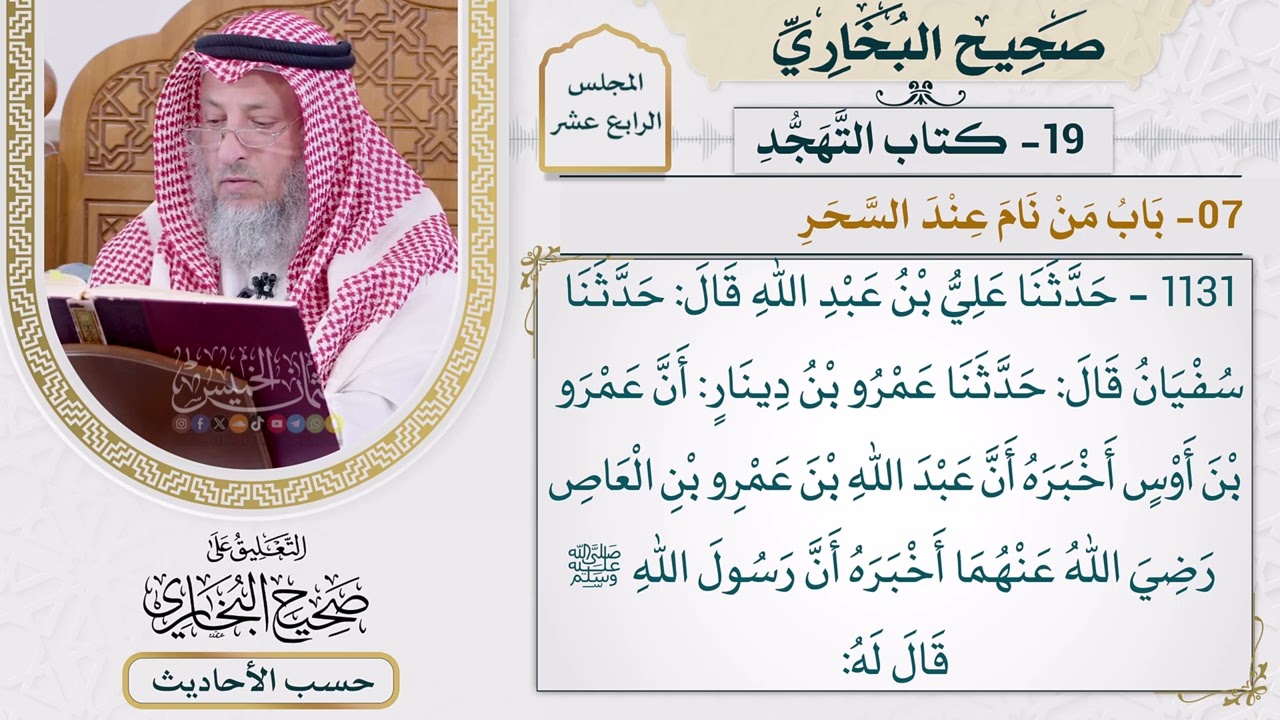 صَحِيح البُخَارِيِّ
19- كتاب التَّهَجُّدِ
المجلس
الرابع عشر
07- بَابُ مَنْ نَامَ عِنْدَ السَّحَرِ
1131 - حَدَّثَنَا عَلِيُّ بْنُ عَبْدِ اللهِ قَالَ: حَدَّثَنَا
سُفْيَانُ قَالَ: حَدَّثَنَا عَمْرُو بْنُ دِينَارٍ: أَنَّ عَمْرَو
بْنَ أَوْسٍ أَخْبَرَهُ أَنَّ عَبْدَ اللهِ بْنَ عَمْرِو بْنِ الْعَاصِ
رَضِيَ اللهُ عَنْهُمَا أَخْبَرَهُ أَنَّ رَسُولَ اللهِ ﷺ
قَالَ لَهُ:
عثمان الخميس
التَّعْلِيقُ عَلَى
صَحِيحُ البُخَارِي
حسب الأحاديث